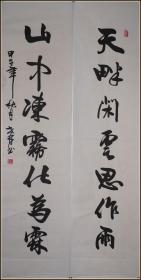 天畔闲云思作雨
山中冻雾化为霖
甲子年秋月